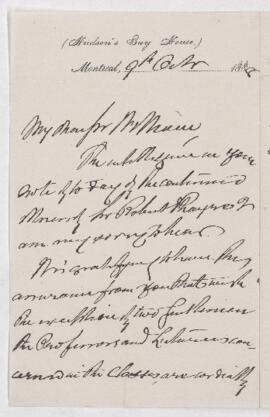 (Hudson's Bay House.)
Montreal, 9th Octr 188
My dear
The intelligence in your
note of to day of the continued
illness of Mr Robert I
am very sorry to hear
It is gratifying to have the
assurance from you that with
the exception of two gentlemen
the Professors and Lecturers con
cerned in the Classes are cordially